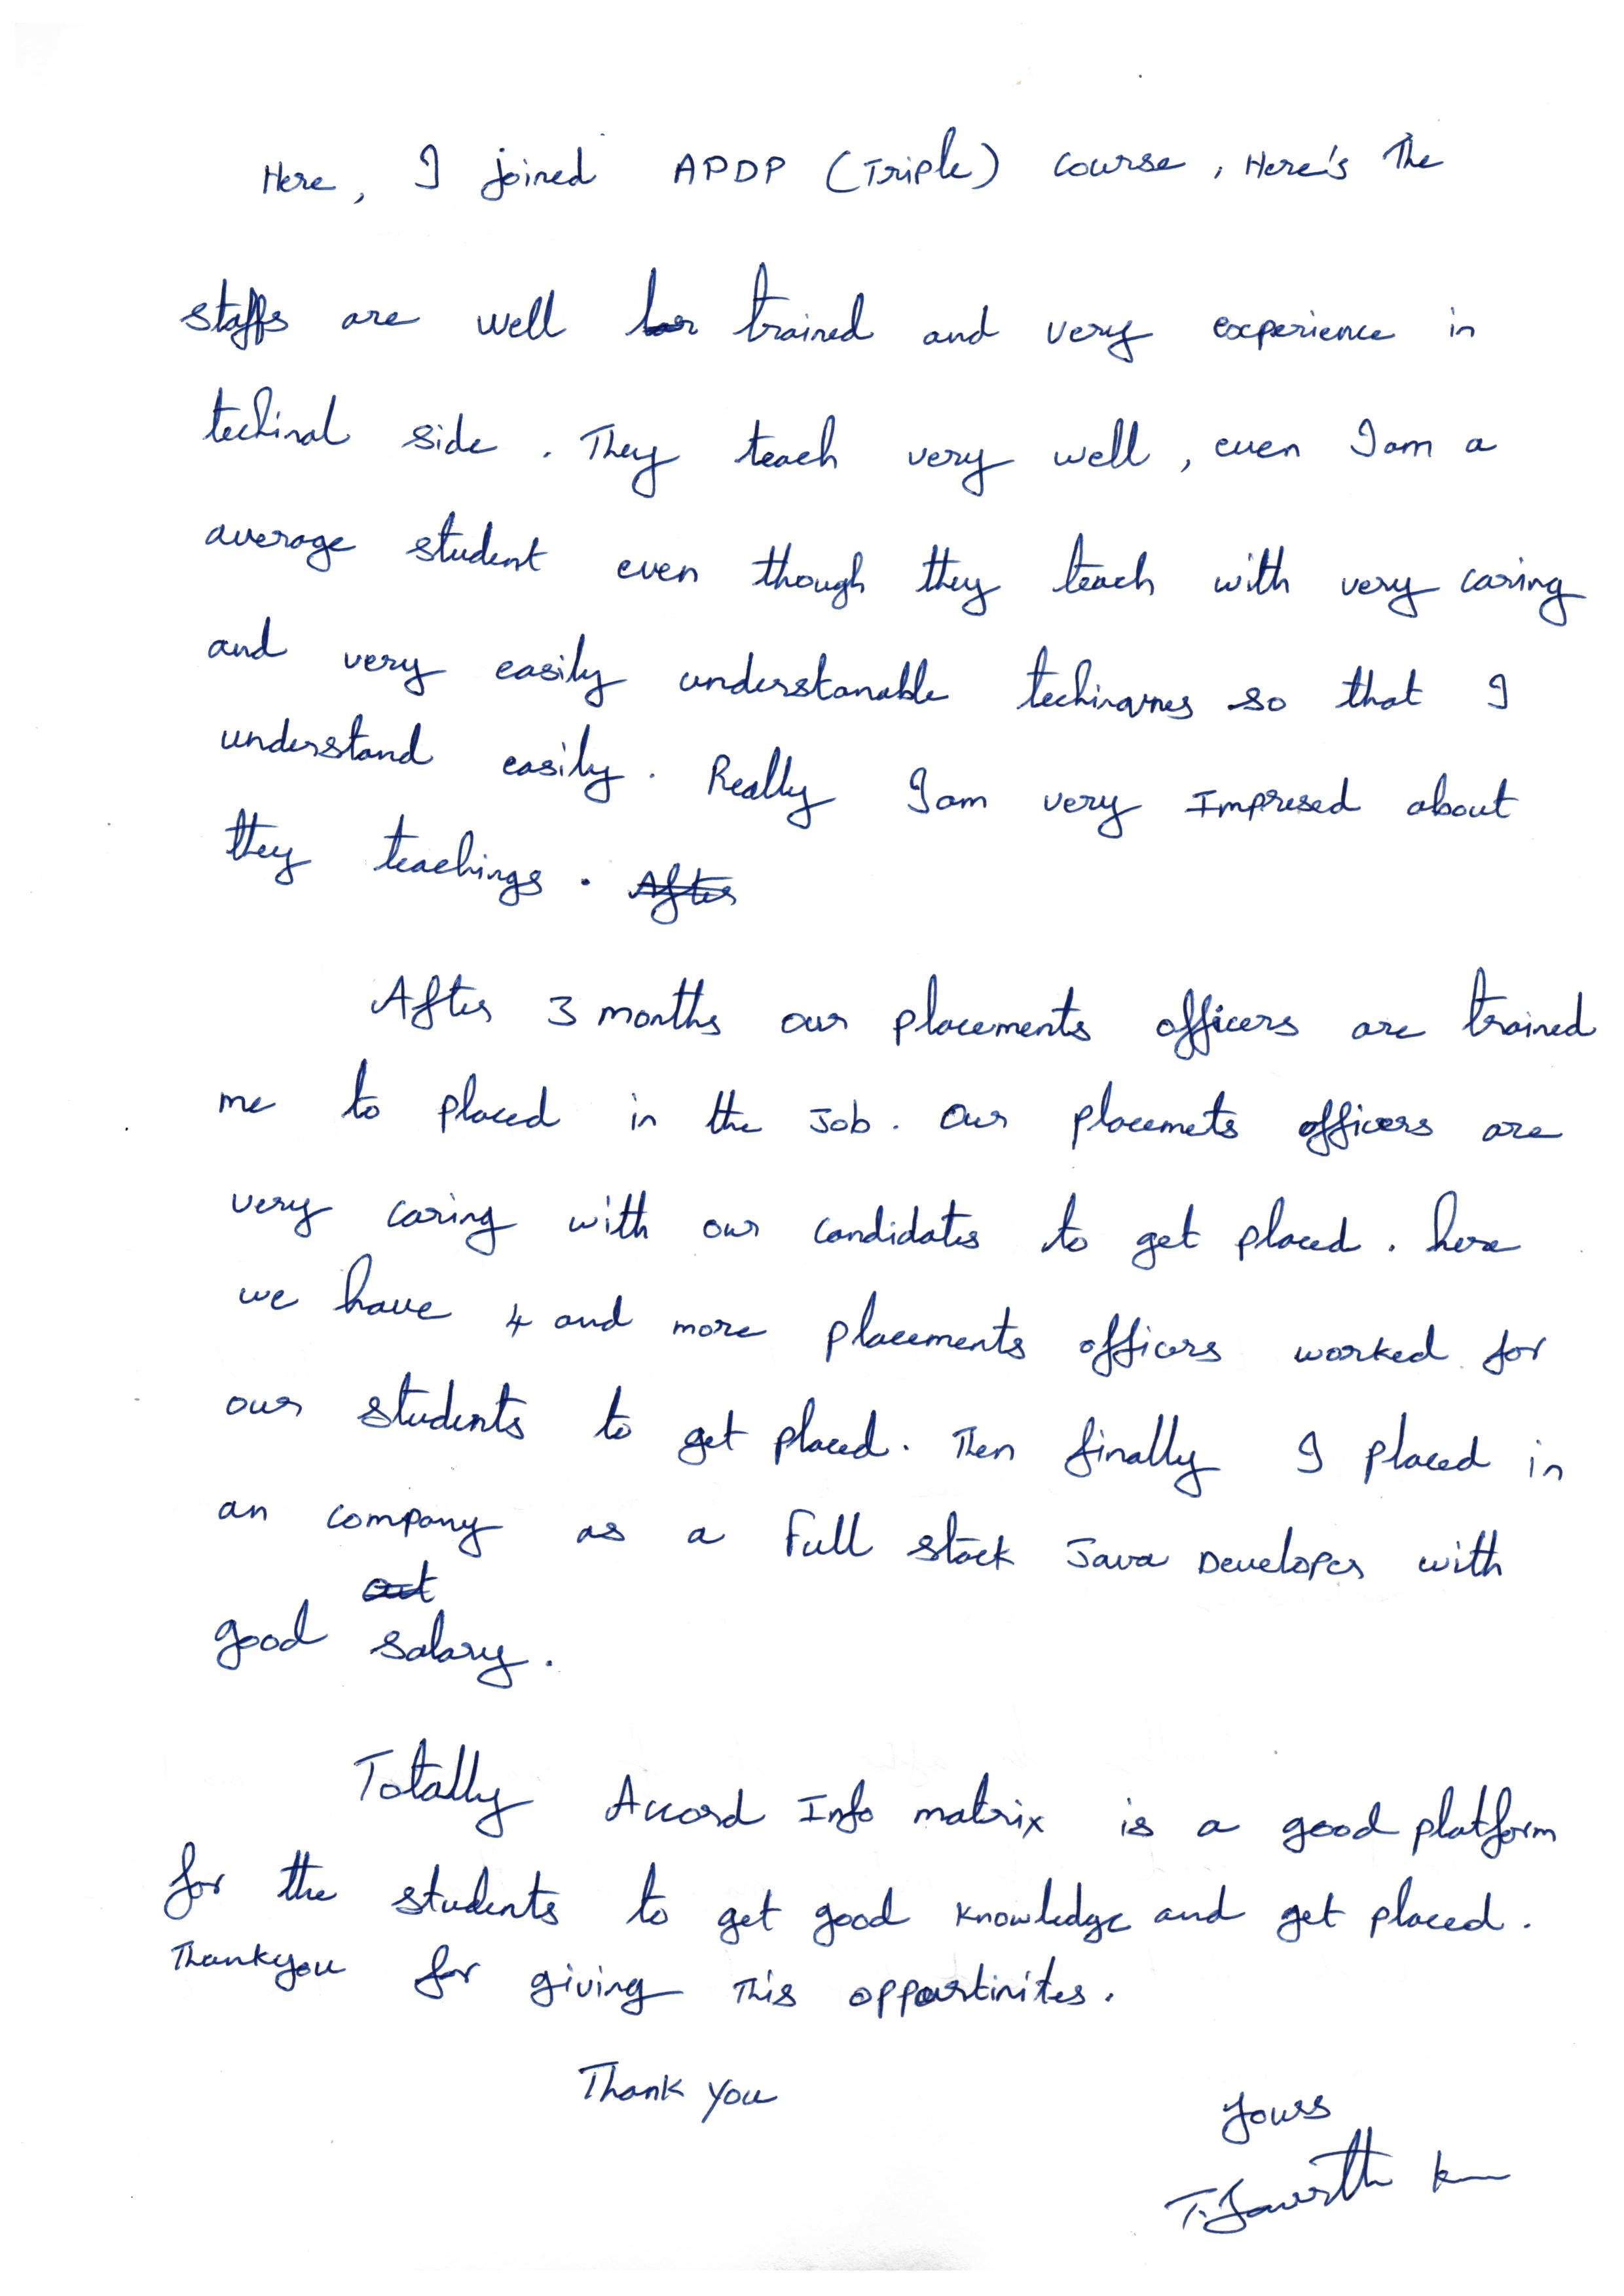 Here, I joined APDP (Triple) course, Here's The
staffs are well trained and very experience in
techinal side. They teach very well, even I am a
average student even though they teach with very caring
and very easily understanable techinques so that I
understand easily. Really I am very Impresed about
they teachings. After
After 3 months our placements officers are trained
me to placed in the Job. Our placemets officers are
very caring with our candidates to get placed. here
we have 4 and more placements officers worked for
our students to get placed. Then finally I placed in
an company as a Full stack Java Developer with
good salary.
Totally Accord Info matrix is a good platform
for the students to get good knowledge and get placed.
Thankyou for giving This oppartinites.
Thank you
Yours